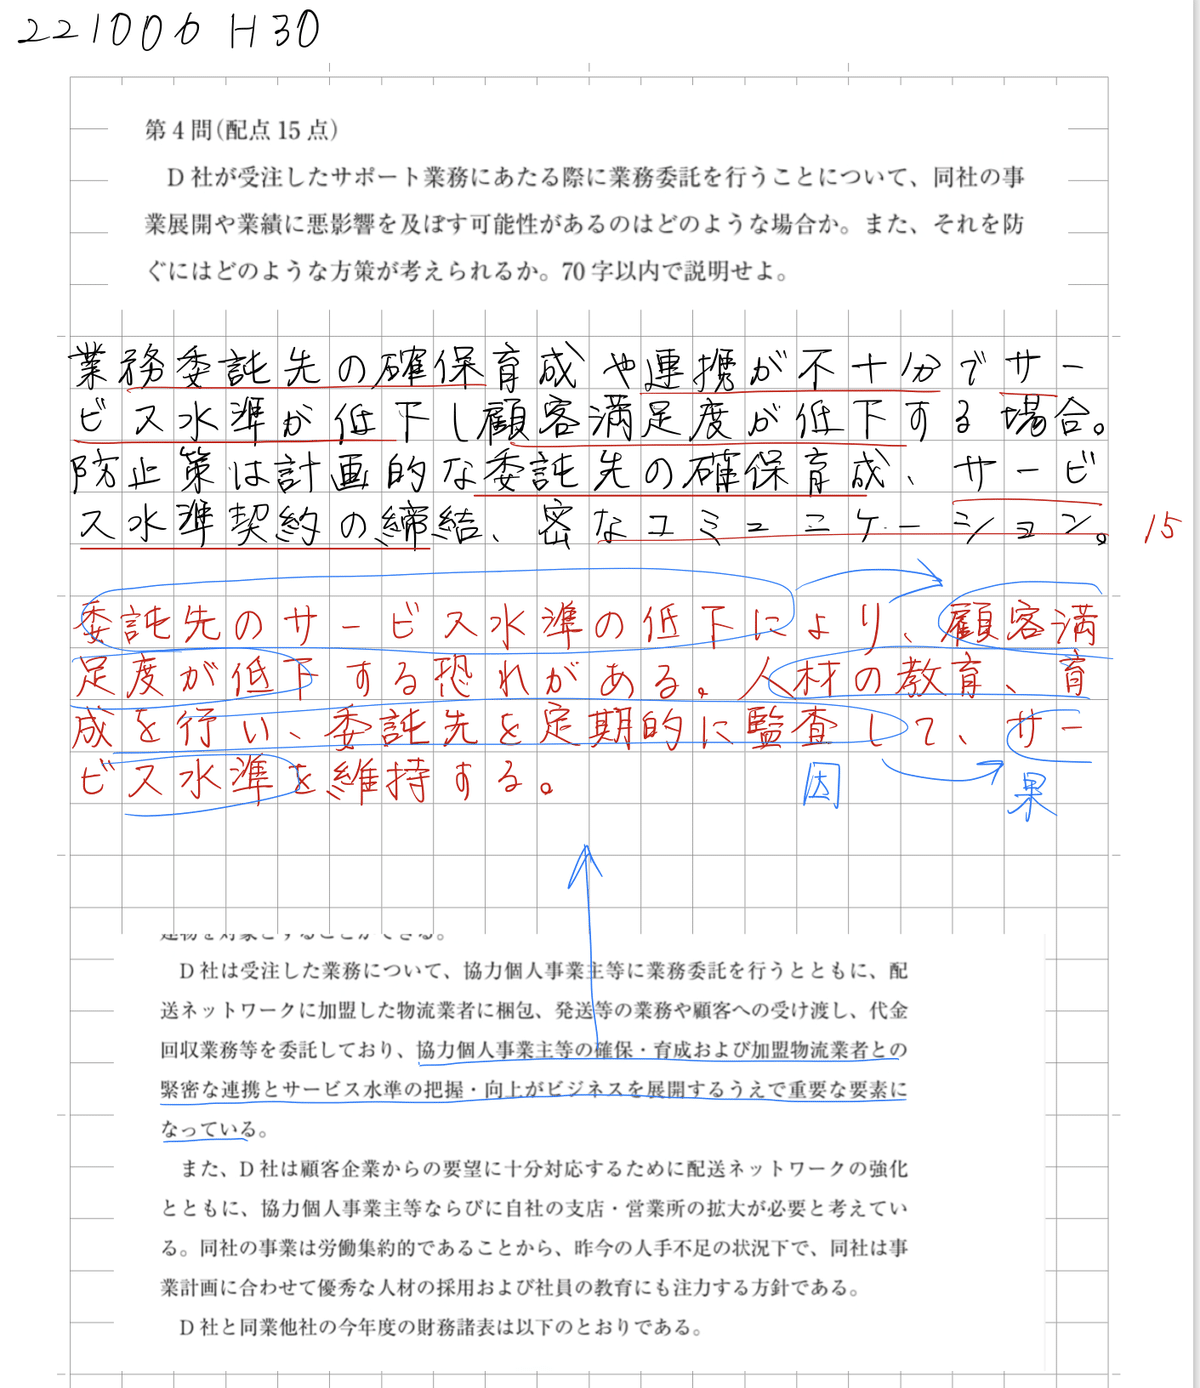 221006 H30
第4問(配点15点)
D社が受注したサポート業務にあたる際に業務委託を行うことについて、同社の事
業展開や業績に悪影響を及ぼす可能性があるのはどのような場合か。また、それを防
ぐにはどのような方策が考えられるか。70字以内で説明せよ。
業務委託先の確保育成や連携が不十分でサー
ビス水準が低下し顧客満足度が低下する場合。
防止策は計画的な委託先の確保育成、サービ
ス水準契約の締結、密なコミュニケーション。
15
委託先のサービス水準の低下により、顧客満
足度が低下する恐れがある。人材の教育、育
成を行い、委託先を定期的に監査して、サー
ビス水準を維持する。
因
果
建物を対象とすることができる。
D社は受注した業務について、協力個人事業主等に業務委託を行うとともに、配
送ネットワークに加盟した物流業者に梱包、発送等の業務や顧客への受け渡し、代金
回収業務等を委託しており、協力個人事業主等の確保・育成および加盟物流業者との
緊密な連携とサービス水準の把握・向上がビジネスを展開するうえで重要な要素に
なっている。
また、D社は顧客企業からの要望に十分対応するために配送ネットワークの強化
とともに、協力個人事業主等ならびに自社の支店・営業所の拡大が必要と考えてい
る。同社の事業は労働集約的であることから、昨今の人手不足の状況下で、同社は事
業計画に合わせて優秀な人材の採用および社員の教育にも注力する方針である。
D社と同業他社の今年度の財務諸表は以下のとおりである。